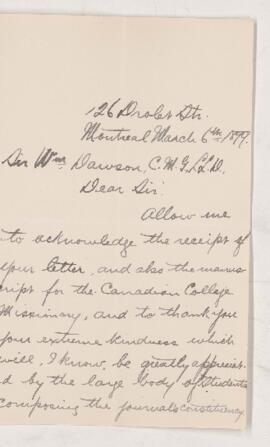 126 Drolet Str.
Montreal March 6th 1899.
Sir Wm Dawson, C.M.G. LL.D.
Dear Sir:
Allow me
to acknowledge the receipt of
your letter, and also the manus
cript for the Canadian College
Missionary, and to thank you
your extreme kindness which
will, I know, be greatly appreciat-
d by the large body of students
composing the journal's constituency.